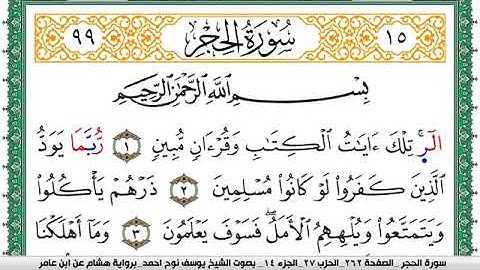 ١٥ سُورَةُ الحِجْرِ ٩٩
بِسْمِ اللَّهِ الرَّحْمَٰنِ الرَّحِيمِ
الٓرۚ تِلْكَ ءَايَٰتُ الْكِتَٰبِ وَقُرْءَانٍ مُّبِينٍ ١ رُّبَّمَا يَوَدُّ
الَّذِينَ كَفَرُوا لَوْ كَانُوا مُسْلِمِينَ ٢ ذَرْهُمْ يَأْكُلُوا
وَيَتَمَتَّعُوا وَيُلْهِهِمُ الْأَمَلُۖ فَسَوْفَ يَعْلَمُونَ ٣ وَمَا أَهْلَكْنَا
سورة الحجر_ الصفحة ٢٦٢_ الحزب ٢٧_ الجزء ١٤_ بصوت الشيخ يوسف نوح احمد_برواية هشام عن ابن عامر